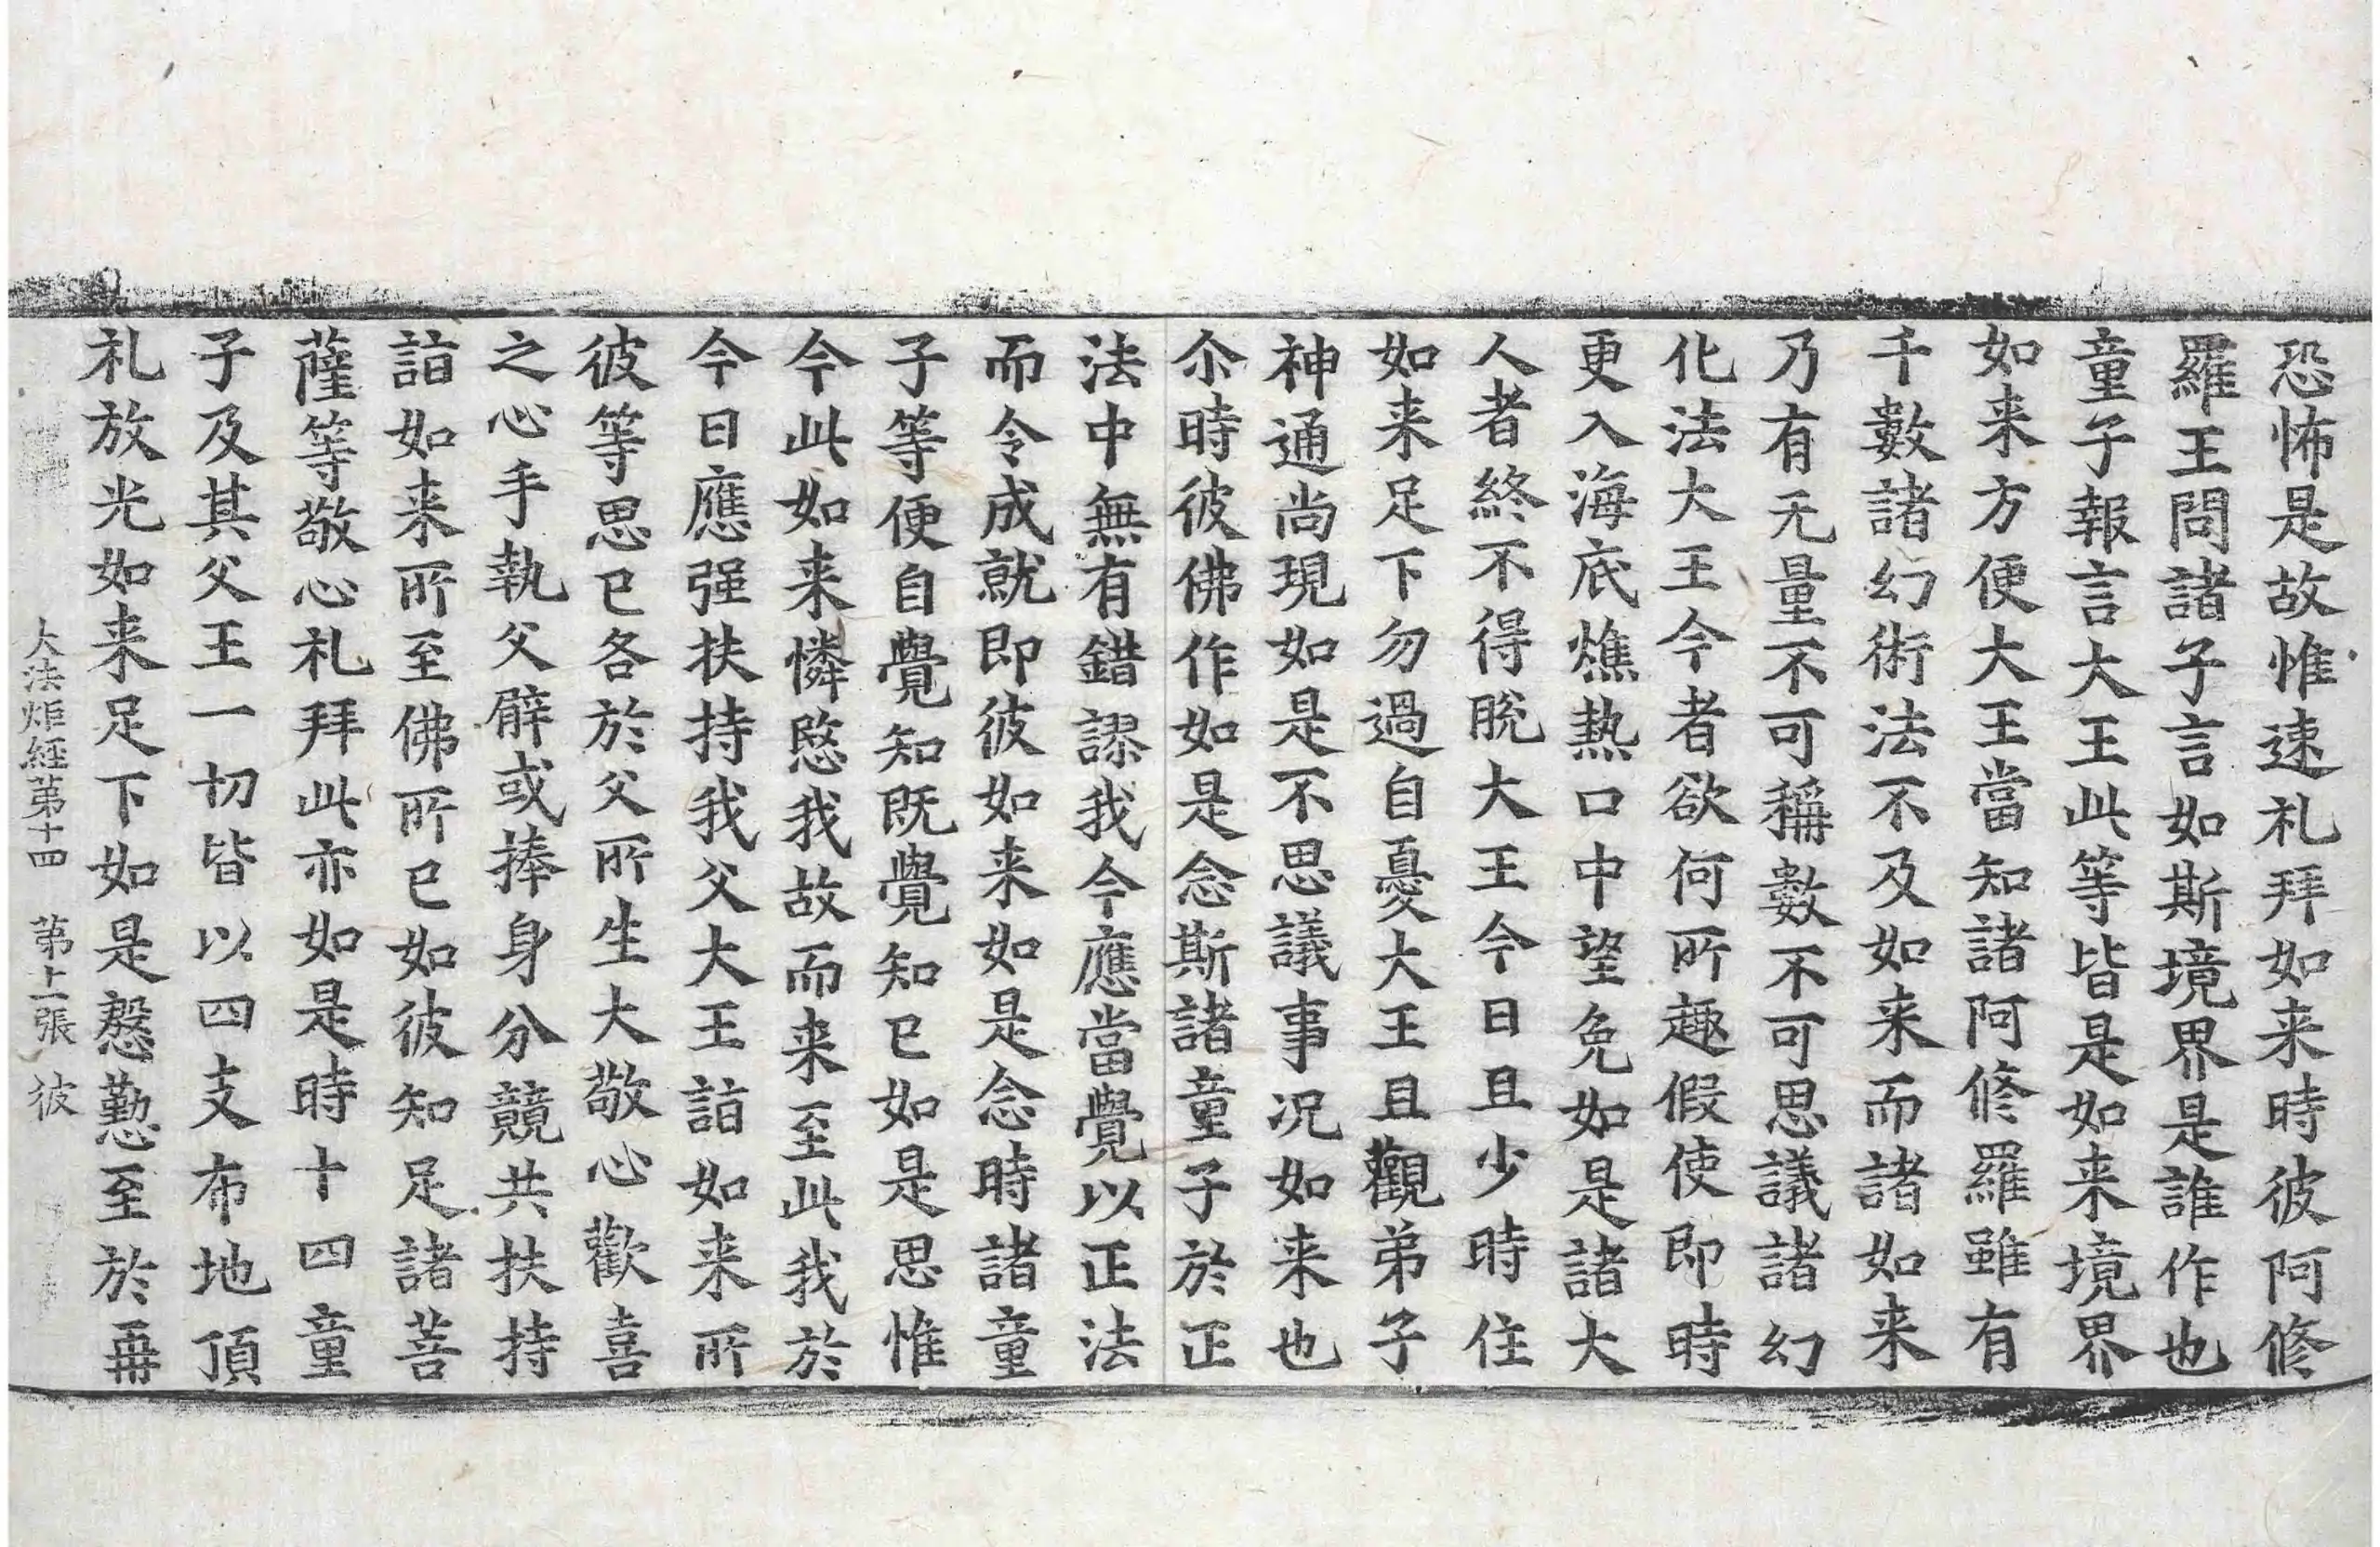 恐怖是故惟速礼拜如来時彼阿修
羅王問諸子言如斯境界是誰作也
童子報言大王此等皆是如来境界
如来方便大王當知諸阿修羅雖有
千數諸幻術法不及如来而諸如来
乃有无量不可稱數不可思議諸幻
化法大王今者欲何所趣假使即時
更入海底燋熱口中望免如是諸大
人者終不得脫大王今日且少時住
如来足下勿過自憂大王且觀弟子
神通尚現如是不思議事况如来也
尒時彼佛作如是念斯諸童子於正
法中無有錯謬我今應當覺以正法
而令成就即彼如来如是念時諸童
子等便自覺知既覺知已如是思惟
今此如来憐愍我故而来至此我於
今日應强扶持我父大王詣如来所
彼等思已各於父所生大敬心歡喜
之心手執父臂或捧身分競共扶持
詣如来所至佛所已如彼知足諸菩
薩等敬心礼拜此亦如是時十四童
子及其父王一切皆以四支布地頂
礼放光如来足下如是慇懃至於再
大法炬經第十四 第十一張 彼